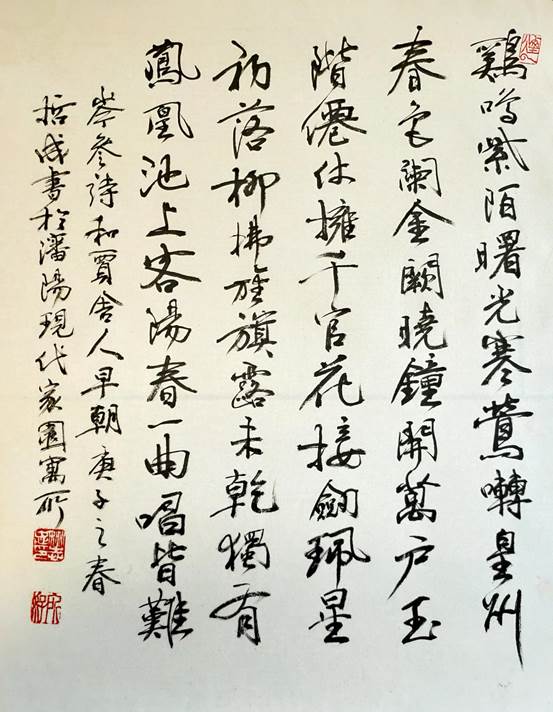 鷄鳴紫陌曙光寒鶯囀皇州
春色闌金闕曉鐘開萬户玉
階僊仗擁千官花接劍珮星
初落柳拂旌旗露未乾獨有
鳳凰池上客陽春一曲唱皆難
岑參詩和賈舍人早朝庚子之春
哲成書於瀋陽現代家園寓所